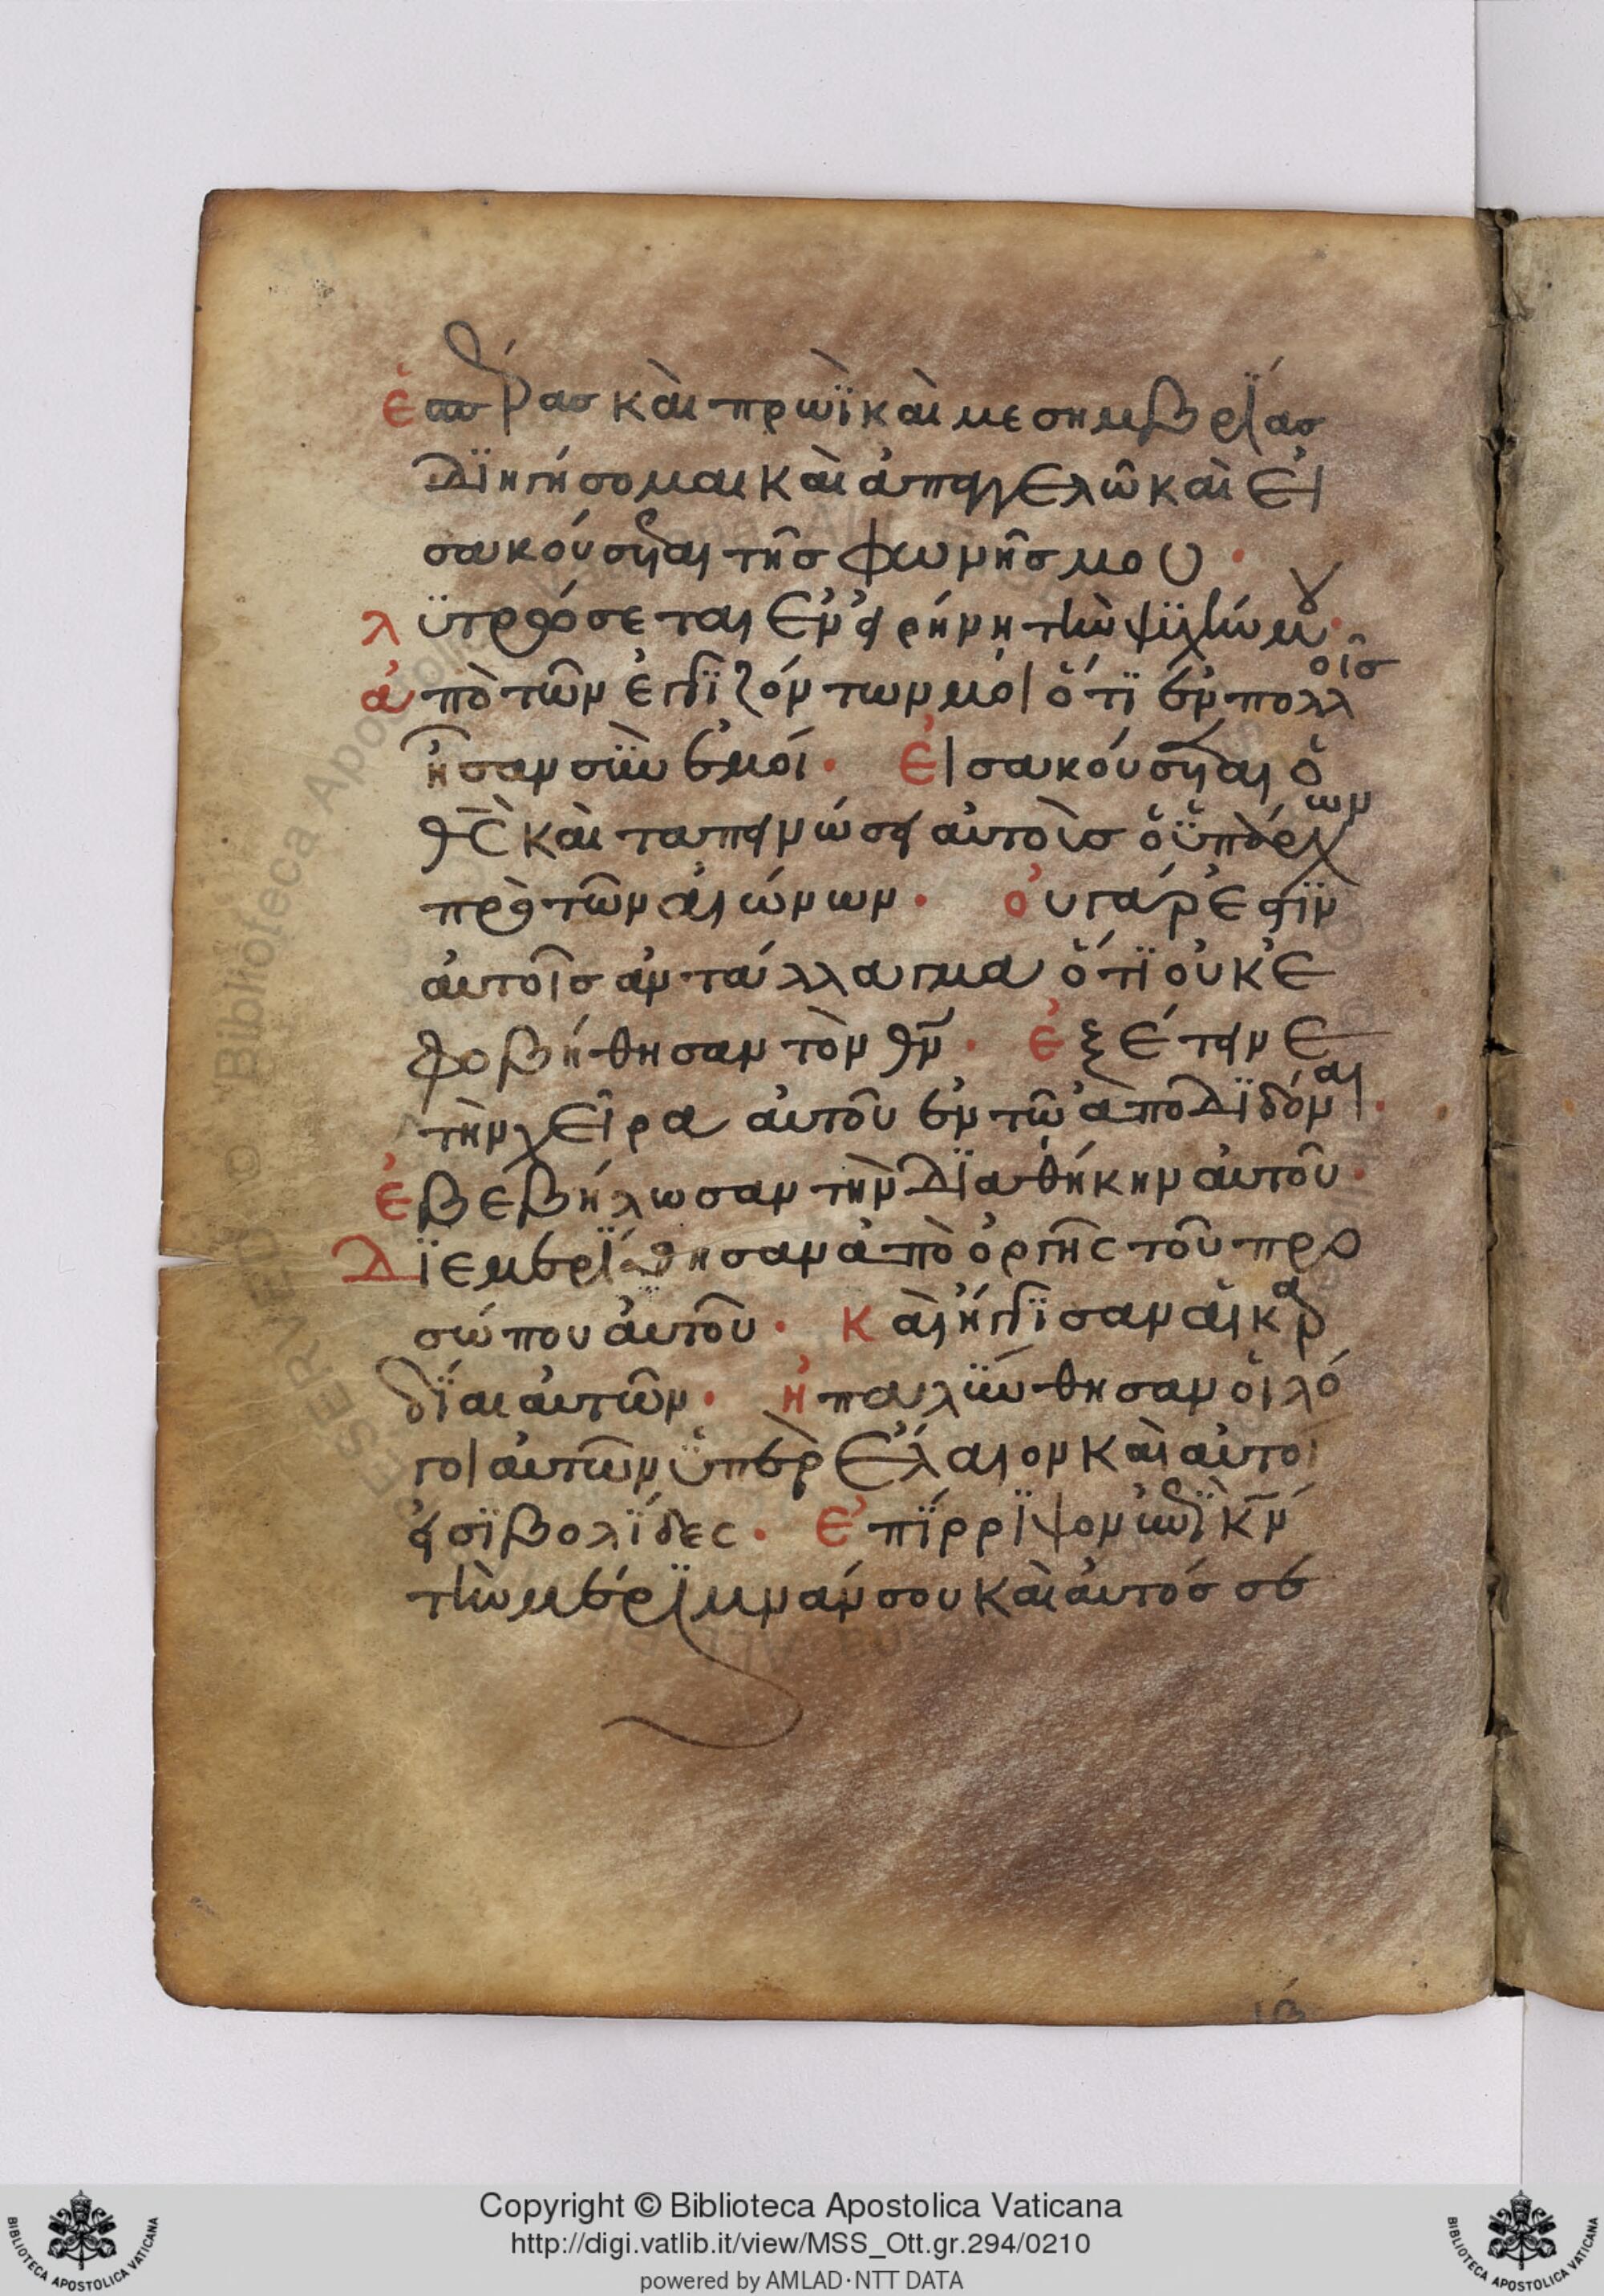 ἑσπέρας καὶ πρωῒ καὶ μεσημβρΐας
διηγήσομαι καὶ ἀπαγγελῶ καὶ εἰ
σακούσεται τῆς φωνῆς μου·
λϋτρώσεται ἐν εἰρήνη τὴν ψϋχήν μου·
ἀπὸ τῶν ἐγγϊζόντων μοι ὅτϊ ἐν πολλοῖς
ἦσαν σὺν ἐμοί· Εἰσακούσεται ὁ
θς καὶ ταπεινώσει αὐτοὺς ὁ ὑπάρχων
πρὸ τῶν αἰώνων· οὐ γάρ ἐστϊν
αὐτοῖς ἀντάλλαγμα ὅτϊ οὐκ ἐ
φοβήθησαν τὸν θν· ἐξέτεινε
τὴν χεῖρα αὐτοῦ ἐν τῶ ἀποδϊδόναι·
ἐβεβήλωσαν τὴν δϊαθήκην αὐτοῦ·
Δϊεμερΐσθησαν ἀπὸ ὀργῆς τοῦ προ
σώπου αὐτοῦ· Καὶ ἤγγϊσαν αἱ καρ
δΐαι αὐτῶν· ἡπαλύνθησαν οἱ λό
γοι αὐτῶν ὑπὲρ ἔλαιον καὶ αὐτοί
εἰσϊ βολΐδες· Ἐπΐρριψον ἐπὶ κν
τὴν μέρϊμνάν σου καὶ αὐτός σε
ιβ
Copyright © Biblioteca Apostolica Vaticana
http://digi.vatlib.it/view/MSS_Ott.gr.294/0210
powered by AMLAD·NTT DATA